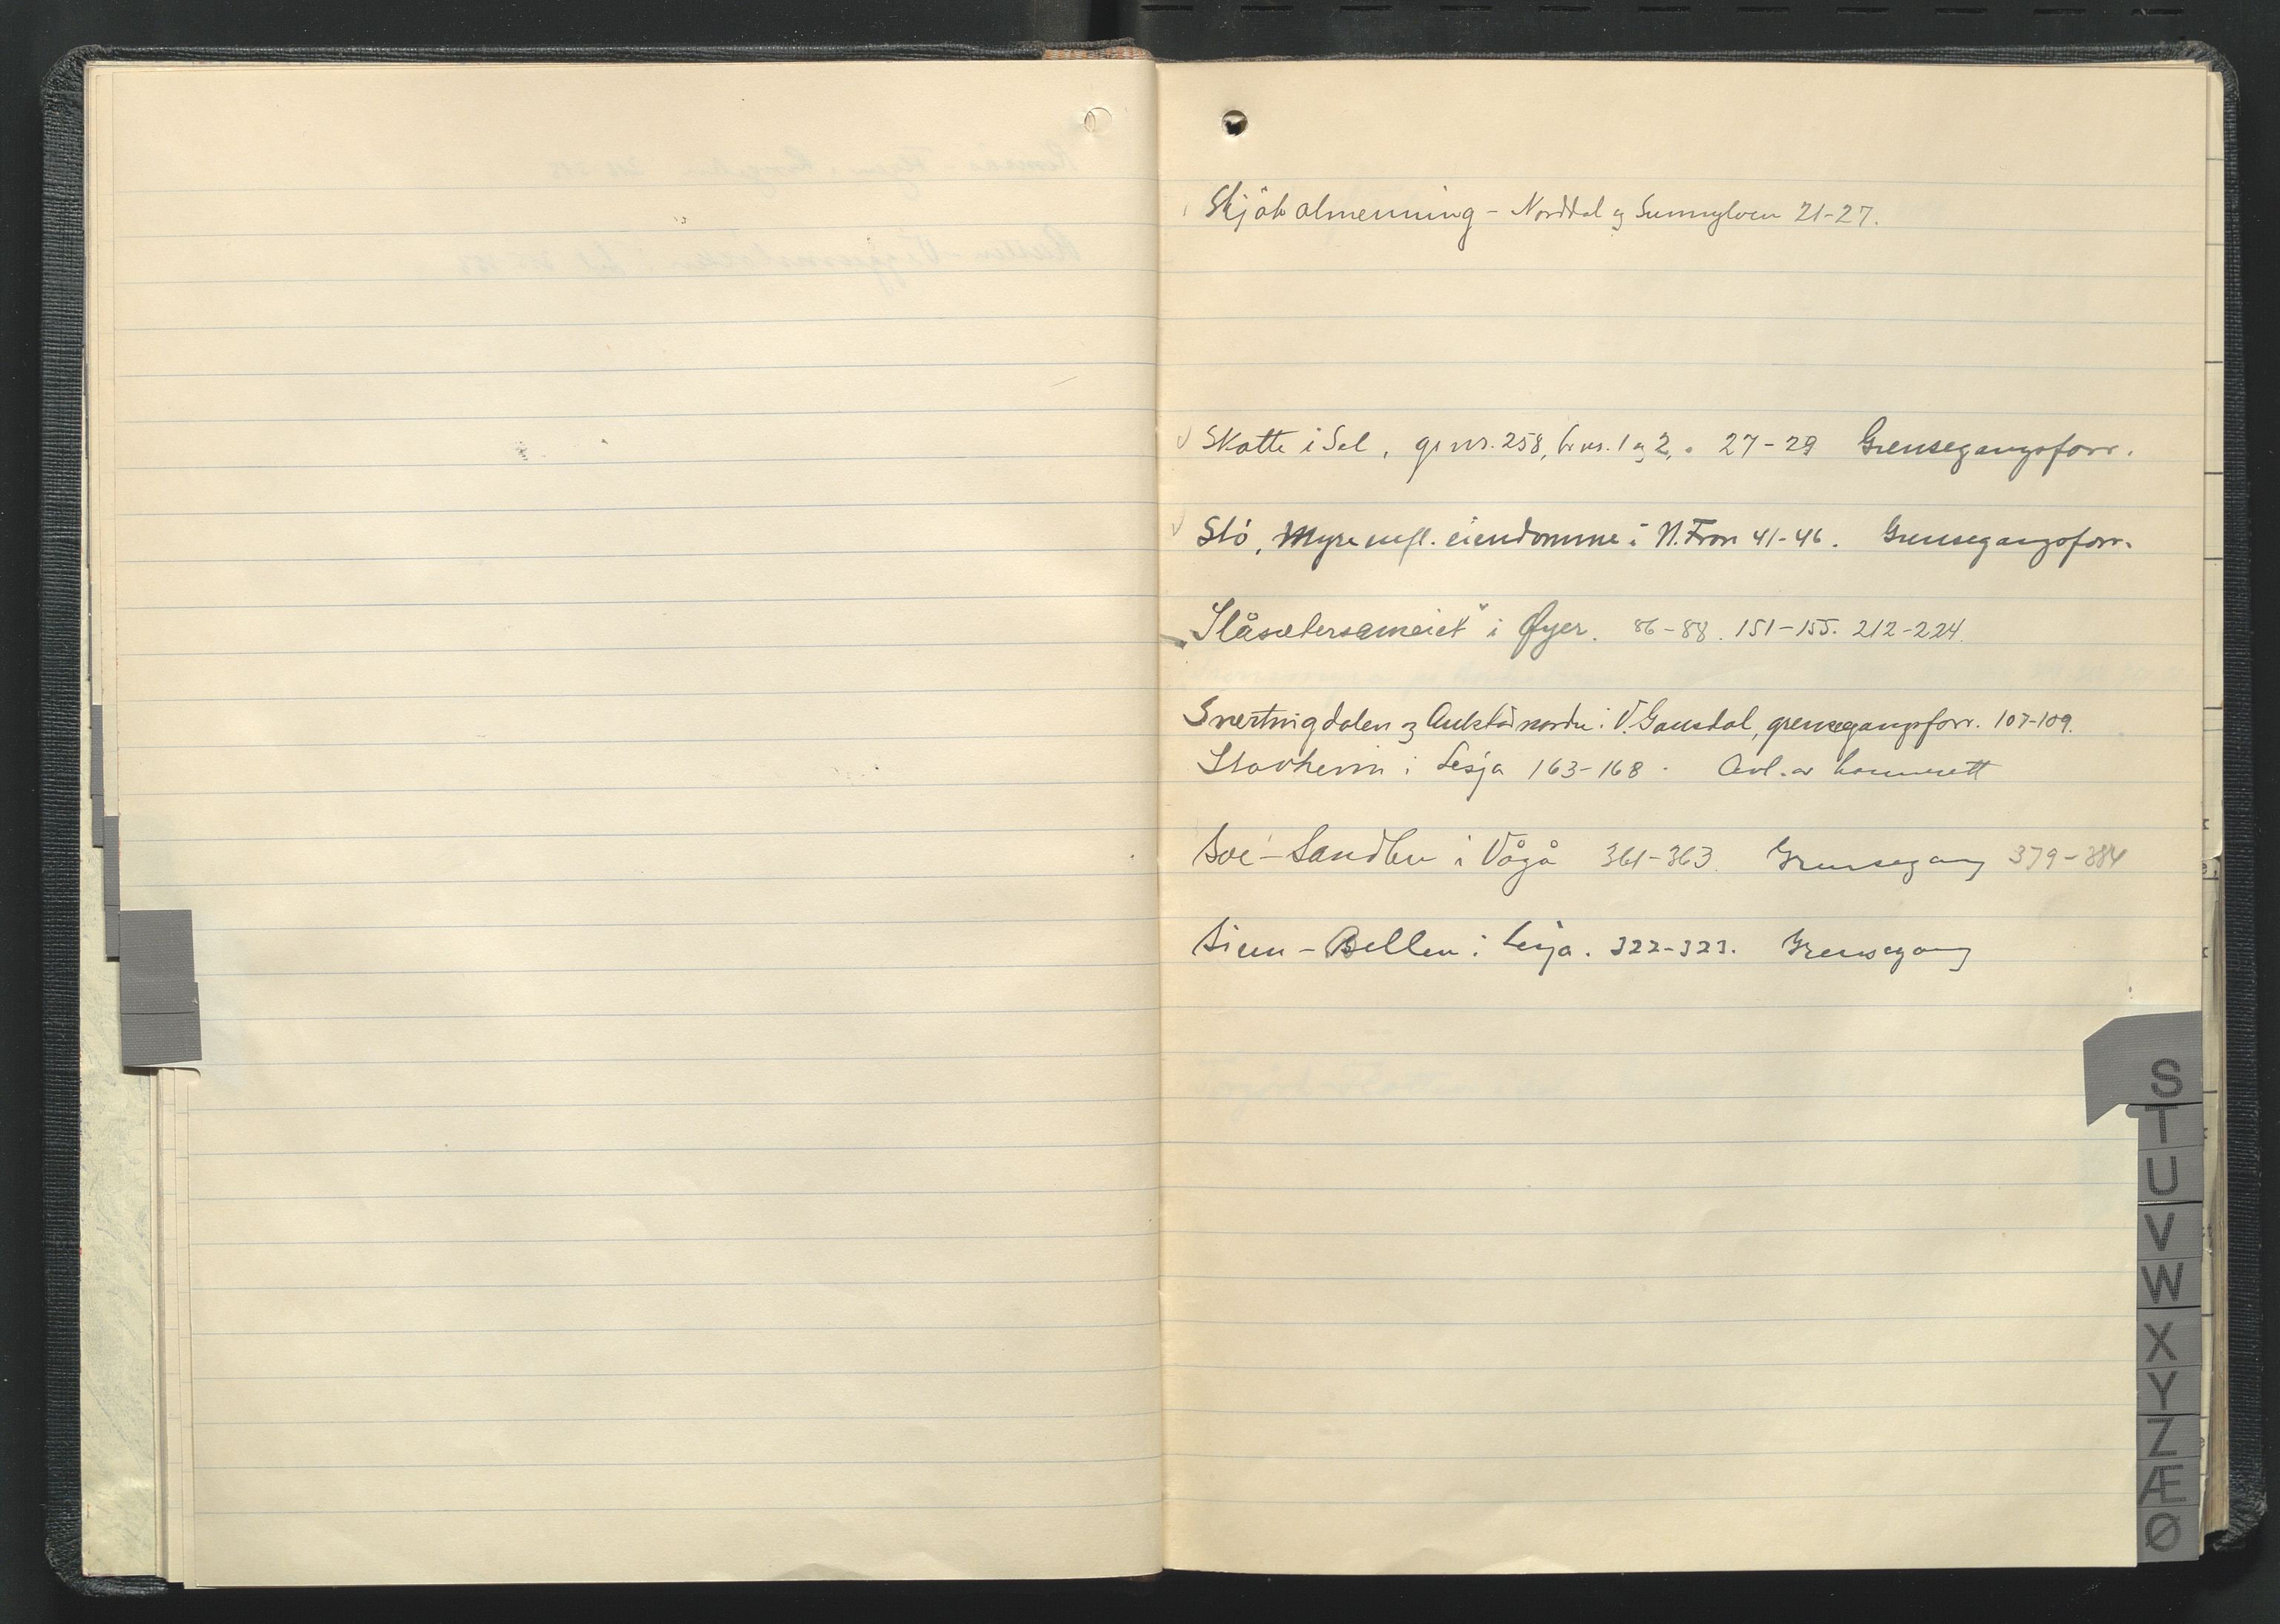 Skjåk almenning - Norddal og Sunnylven 21-27.
Skotte i Sel, gr.nr. 258, br.nr. 1 og 2. 27-29 Grensegangsforr.
Slå, Myre mfl. eiendomme i N. Fron 41-46. Grensegangsforr.
"Slåsætersameiet" i Øyer. 86-88. 151-155. 212-224.
Svertingdalen og nordre i V. Gausdal, grensegangsforr. 107-109.
Stavheim i Lesja 163-168. Avl. av
Soe - Sandbu i Vågå 361-363. Grensegang 379-384
- i Lesja. 322-323. Grensegang
S
T
U
V
W
X
Y
Z
Æ
Ø